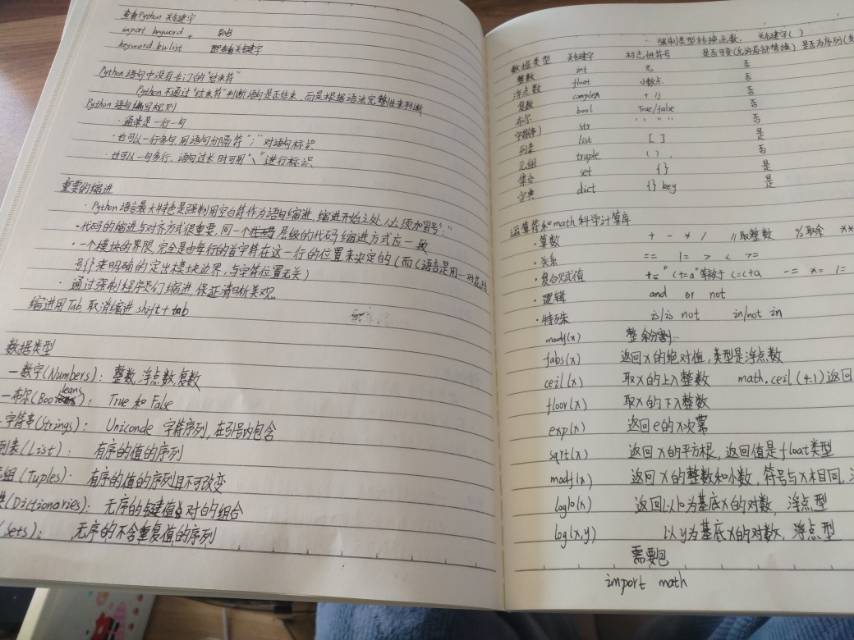 查看Python 关键字
import keyword
keyword.kwlist 即查看关键字
Python 语句中没有专门的"结束符"
Python不通过"结束符"判断语句是否结束，而是根据语法完整性来判断
Python 语句编写规则
·通常是一行一句
·也可以一行多句，用语句分隔符";"对语句标识
·也可以一句多行，语句过长时可用"\"进行标识
重要的缩进
·Python语言最大特色是强制用空白符作为语句缩进，缩进开始之处必须加冒号":"
·代码的缩进与对齐方式很重要，同一个层级的代码缩进方式应一致
·一个模块的界限，完全是由每行的首字符在这一行的位置来决定的(而C语言是用一对花括
号{}来明确的定出模块边界，与字符位置无关)
·通过强制程序员们缩进，保证清晰美观
缩进用Tab 取消缩进 shift+tab
数据类型
一数字(Numbers)：整数，浮点数，复数
一布尔(Booleans)： True 和 False
字符串(Strings)： Uniconde 字符序列，在引号内包含
列表(List)： 有序的值的序列
组(Tuples)： 有序的值的序列且不可改变
(Dictionaries)：无序的键值对的组合
(Sets)： 无序的不含重复值的序列
强制类型转换函数： 关键字()
数据类型 关键字 标志性符号
整数 int 无 否
浮点数 float 小数点 否
复数 complex 否
布尔 bool True/False 否
字符串 str 否
列表 list [ ] 是
元组 truple ( ) 否
集合 set { } 是
字典 dict { } key 是
运算符和math科学计算库
·算数 + - * / //取整数 %取余 **
·关系 == != > < >=
·复合赋值 -= *= /=
·逻辑 and or not
·特殊 is/is not in/not in
modf(x) 整余分割
fabs(x) 返回x的绝对值，类型是浮点数
ceil(x) 取x的上入整数 math.ceil(4.1)返回
floor(x) 取x的下入整数
exp(x) 返回e的x次幂
sqrt(x) 返回x的平方根，返回值是float类型
modf(x) 返回x的整数和小数，符号与x相同
log10(x) 返回以10为基底x的对数，浮点型
log(x,y) 以y为基底x的对数，浮点型
需要包
import math